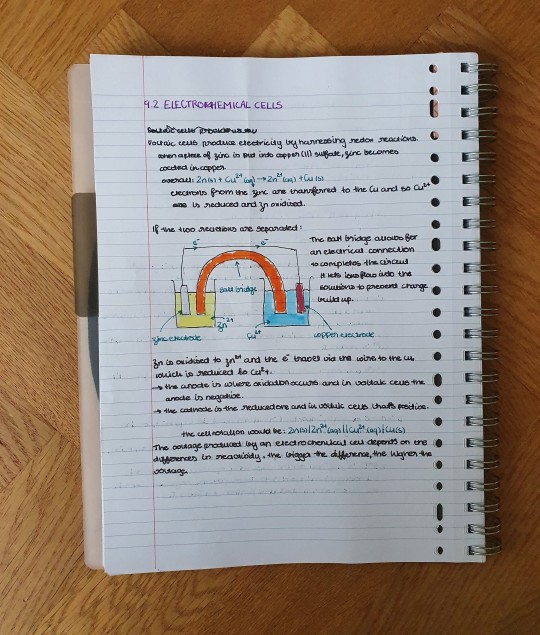 9.2 ELECTROCHEMICAL CELLS
Voltaic cells produce electricity by harnessing redox reactions.
when a piece of zinc is put into copper (II) sulfate, zinc becomes
coated in copper
overall: Zn(s) + Cu²⁺(aq) → Zn²⁺(aq) + Cu(s)
electrons from the zinc are transferred to the Cu and so Cu²⁺
is reduced and Zn oxidised.
If the two reactions are separated:
e⁻
e⁻
salt bridge
Zn²⁺
Cu²⁺
zinc electrode
copper electrode
The salt bridge allows for
an electrical connection
to completes the circuit
It lets ions flow into the
solutions to prevent
build up.
Zn is oxidised to Zn²⁺ and the e⁻ travel via the wire to the Cu,
which is reduced to Cu²⁺.
→ the anode is where oxidation occurs and in voltaic cells the
anode is negative.
→ the cathode is the reduced one and in voltaic cells that's positive
the cell notation would be: Zn(s)|Zn²⁺(aq)||Cu²⁺(aq)|Cu(s)
The voltage produced by an electrochemical cell depends on the
differences in reactivity. the bigger the difference, the higher the
voltage.